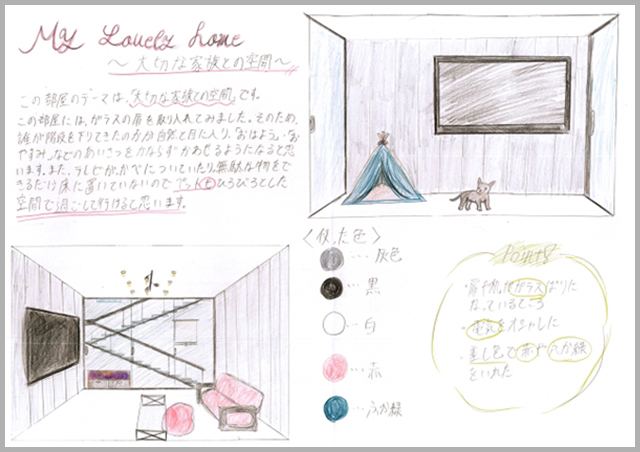 My Lovely home
～大切な家族との空間～
この部屋のテーマは、「大切な家族との空間」です。
この部屋には、ガラスの扉を取り入れてみました。そのため、
誰が階段を下りてきたのか分自然と目に入り、「おはよう」・「お
やすみ」などのあいさつをかならずかわせるようになると思
います。また、テレビがかべについていたり、無駄な物をで
きるだけ床に置いていないのでペットもひろびろとした
空間で過ごして行けると思います。
＜使った色＞
…灰色
…黒
…白
…赤
…ふか緑
Points
がガラスばりに
なっているところ
・電気をオシャレにした
・差し色で赤やふか緑
をいれた